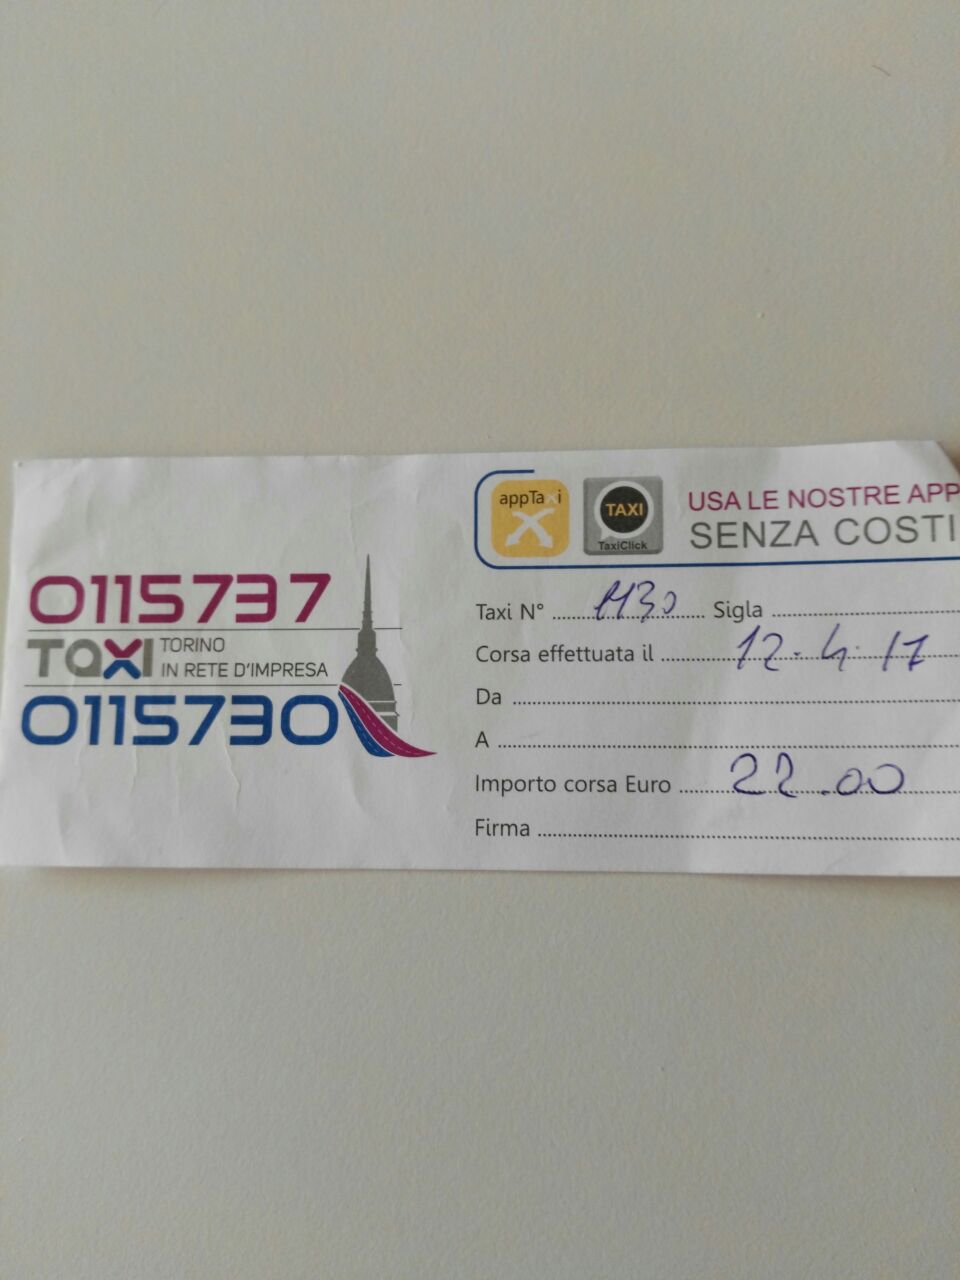 0115737
TAXI TORINO
IN RETE D'IMPRESA
0115730
appTaxi
TAXI
TaxiClick
USA LE NOSTRE APP
SENZA COSTI
Taxi N° 1130 Sigla
Corsa effettuata il 12.4.17
Da
A
Importo corsa Euro 22.00
Firma